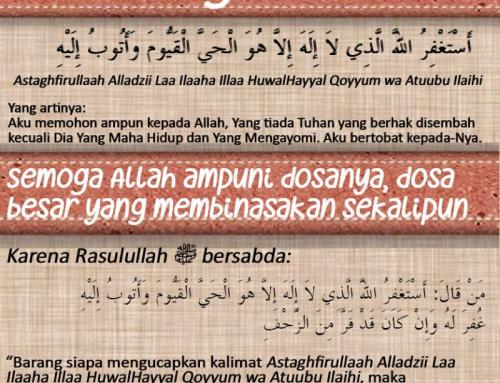 أَسْتَغْفِرُ اللَّهَ الَّذِي لاَ إِلَهَ إِلاَّ هُوَ الْحَيَّ الْقَيُّومَ وَأَتُوبُ إِلَيْهِ
Astaghfirullaah Alladzii Laa Ilaaha Illaa HuwalHayyal Qoyyum wa Atuubu Ilaihi
Yang artinya:
Aku memohon ampun kepada Allah, Yang tiada Tuhan yang berhak disembah
kecuali Dia Yang Maha Hidup dan Yang Mengayomi. Aku bertobat kepada-Nya.
Semoga Allah ampuni dosanya, dosa
besar yang membinasakan sekalipun
Karena Rasulullah ﷺ bersabda:
مَنْ قَالَ: أَسْتَغْفِرُ اللَّهَ الَّذِي لاَ إِلَهَ إِلاَّ هُوَ الْحَيَّ الْقَيُّومَ وَأَتُوبُ إِلَيْهِ
غُفِرَ لَهُ وَإِنْ كَانَ قَدْ فَرَّ مِنَ الزَّحْفِ
“Barang siapa mengucapkan kalimat Astaghfirullaah Alladzii Laa
Ilaaha Illaa HuwalHayyal Qoyyum wa Atuubu Ilaihi, maka